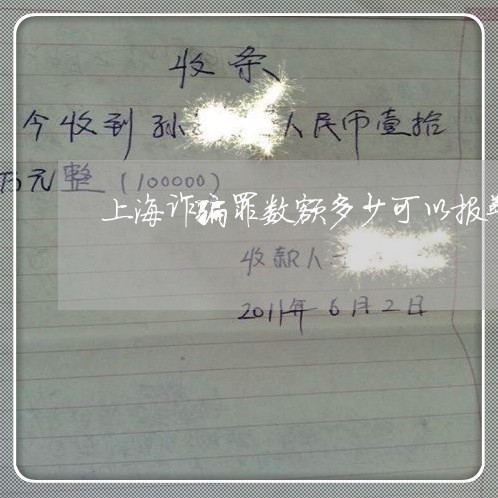 收条
今收到孙 人民币壹拾
万元整（100000）
上海诈骗罪数额多少可以报
收款人
2011年6月2日